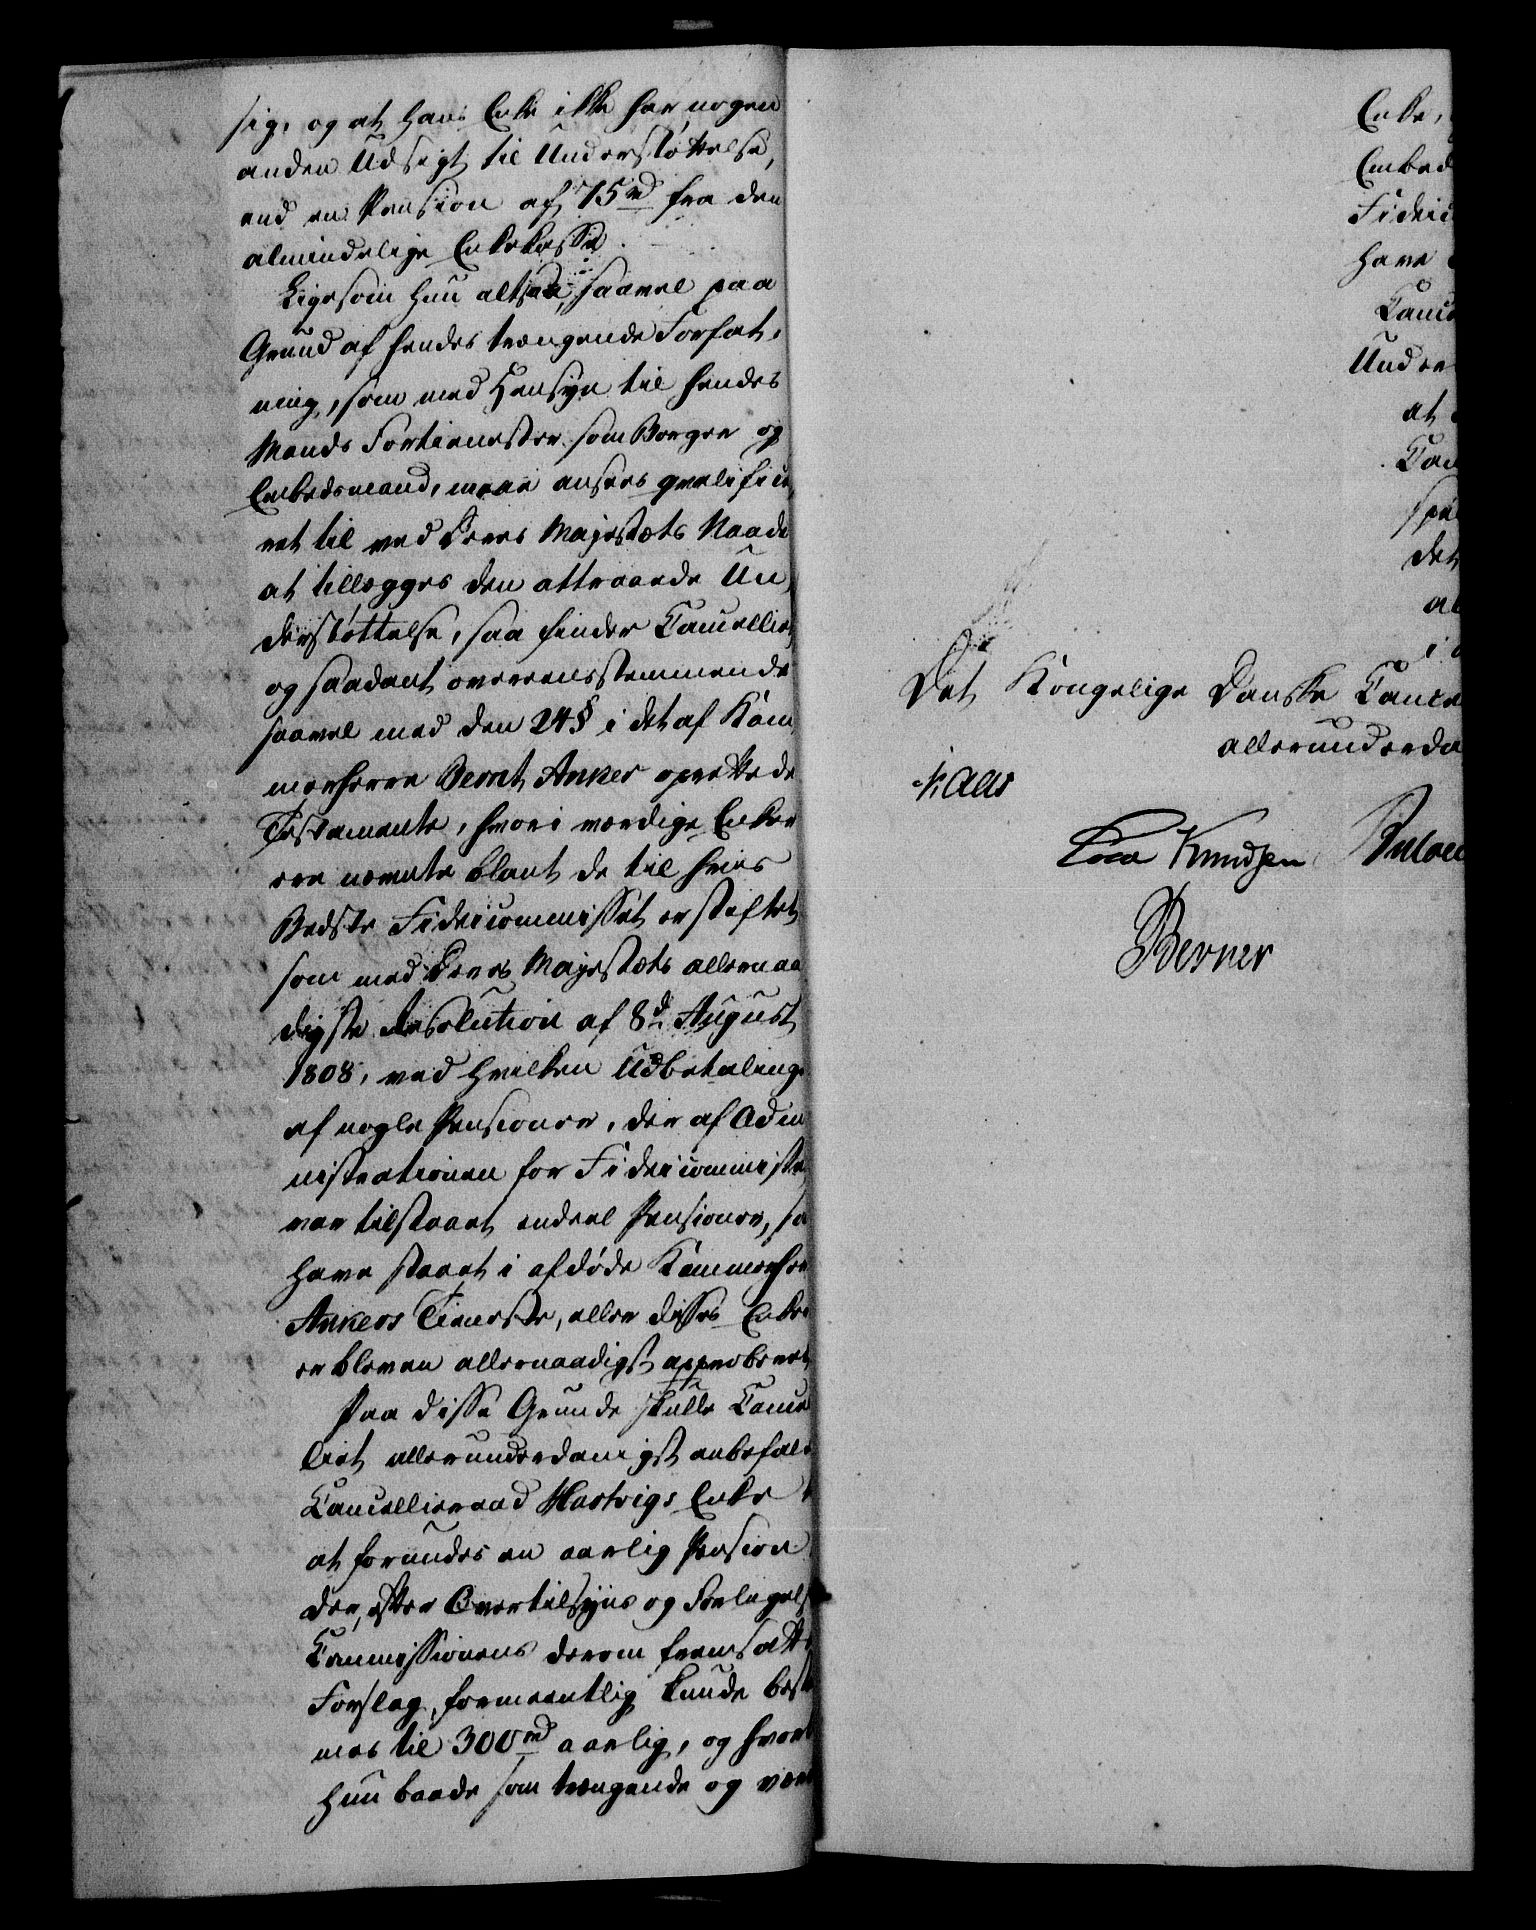 sig, og at hans Enke ikke har nogen
anden Udsigt til Understøttelse,
end en Pension af 75 rd fra den
almindelige Enkekasse.
Ligesom hun altsaa, saavel paa
Grund af hendes trængende Forfat,
ning, som med Hensyn til hendes
Mands Fortienester som Borger og
Embedsmand, maae ansees qvalifice,
ret til ved Deres Majestæts Naade
at tillægges den attraaede Un
derstøttelse, saa finder Cancelliet
og saadant overeensstemmende
saavel med den 24 § i det af Kam,
merherre Bernt Anker oprettede
Testamente, hvori værdige Enker
ere nævnte blant de til hvis
Bedste Fideicommisset er stiftet
som med Deres Majestæts allernaa
digste Resolution af 8d August
1808, ved hvilken Udbetaling
af nogle Pensioner, der af Admi
nistrationen for Fideicommisset
var tilstaaet endeel Pensioner, so
have staaet i afdøde Kammerher
Ankers Tieneste, eller disses Enker
er bleven allernaadigst approberet
Paa disse Grunde skulle Cancel
liet allerunderdanigst anbefale
Cancellieraad Hartvigs Enke
at forundes en aarlig Pension
der, efter Overtilsyns og Forlagels
Commissionens derom fremsatte
Forslag, formeentlig kunde best
mes til 300 rd aarlig, og hvor
hun baade som trængende og vær
Enke,
Embed
Fideic
have
Cance
Under
at
Can
spe
det
al
i
Det Kongelige Danske Cance
allerunderda
Kaas
Cold Knudsen Bülow
Berner